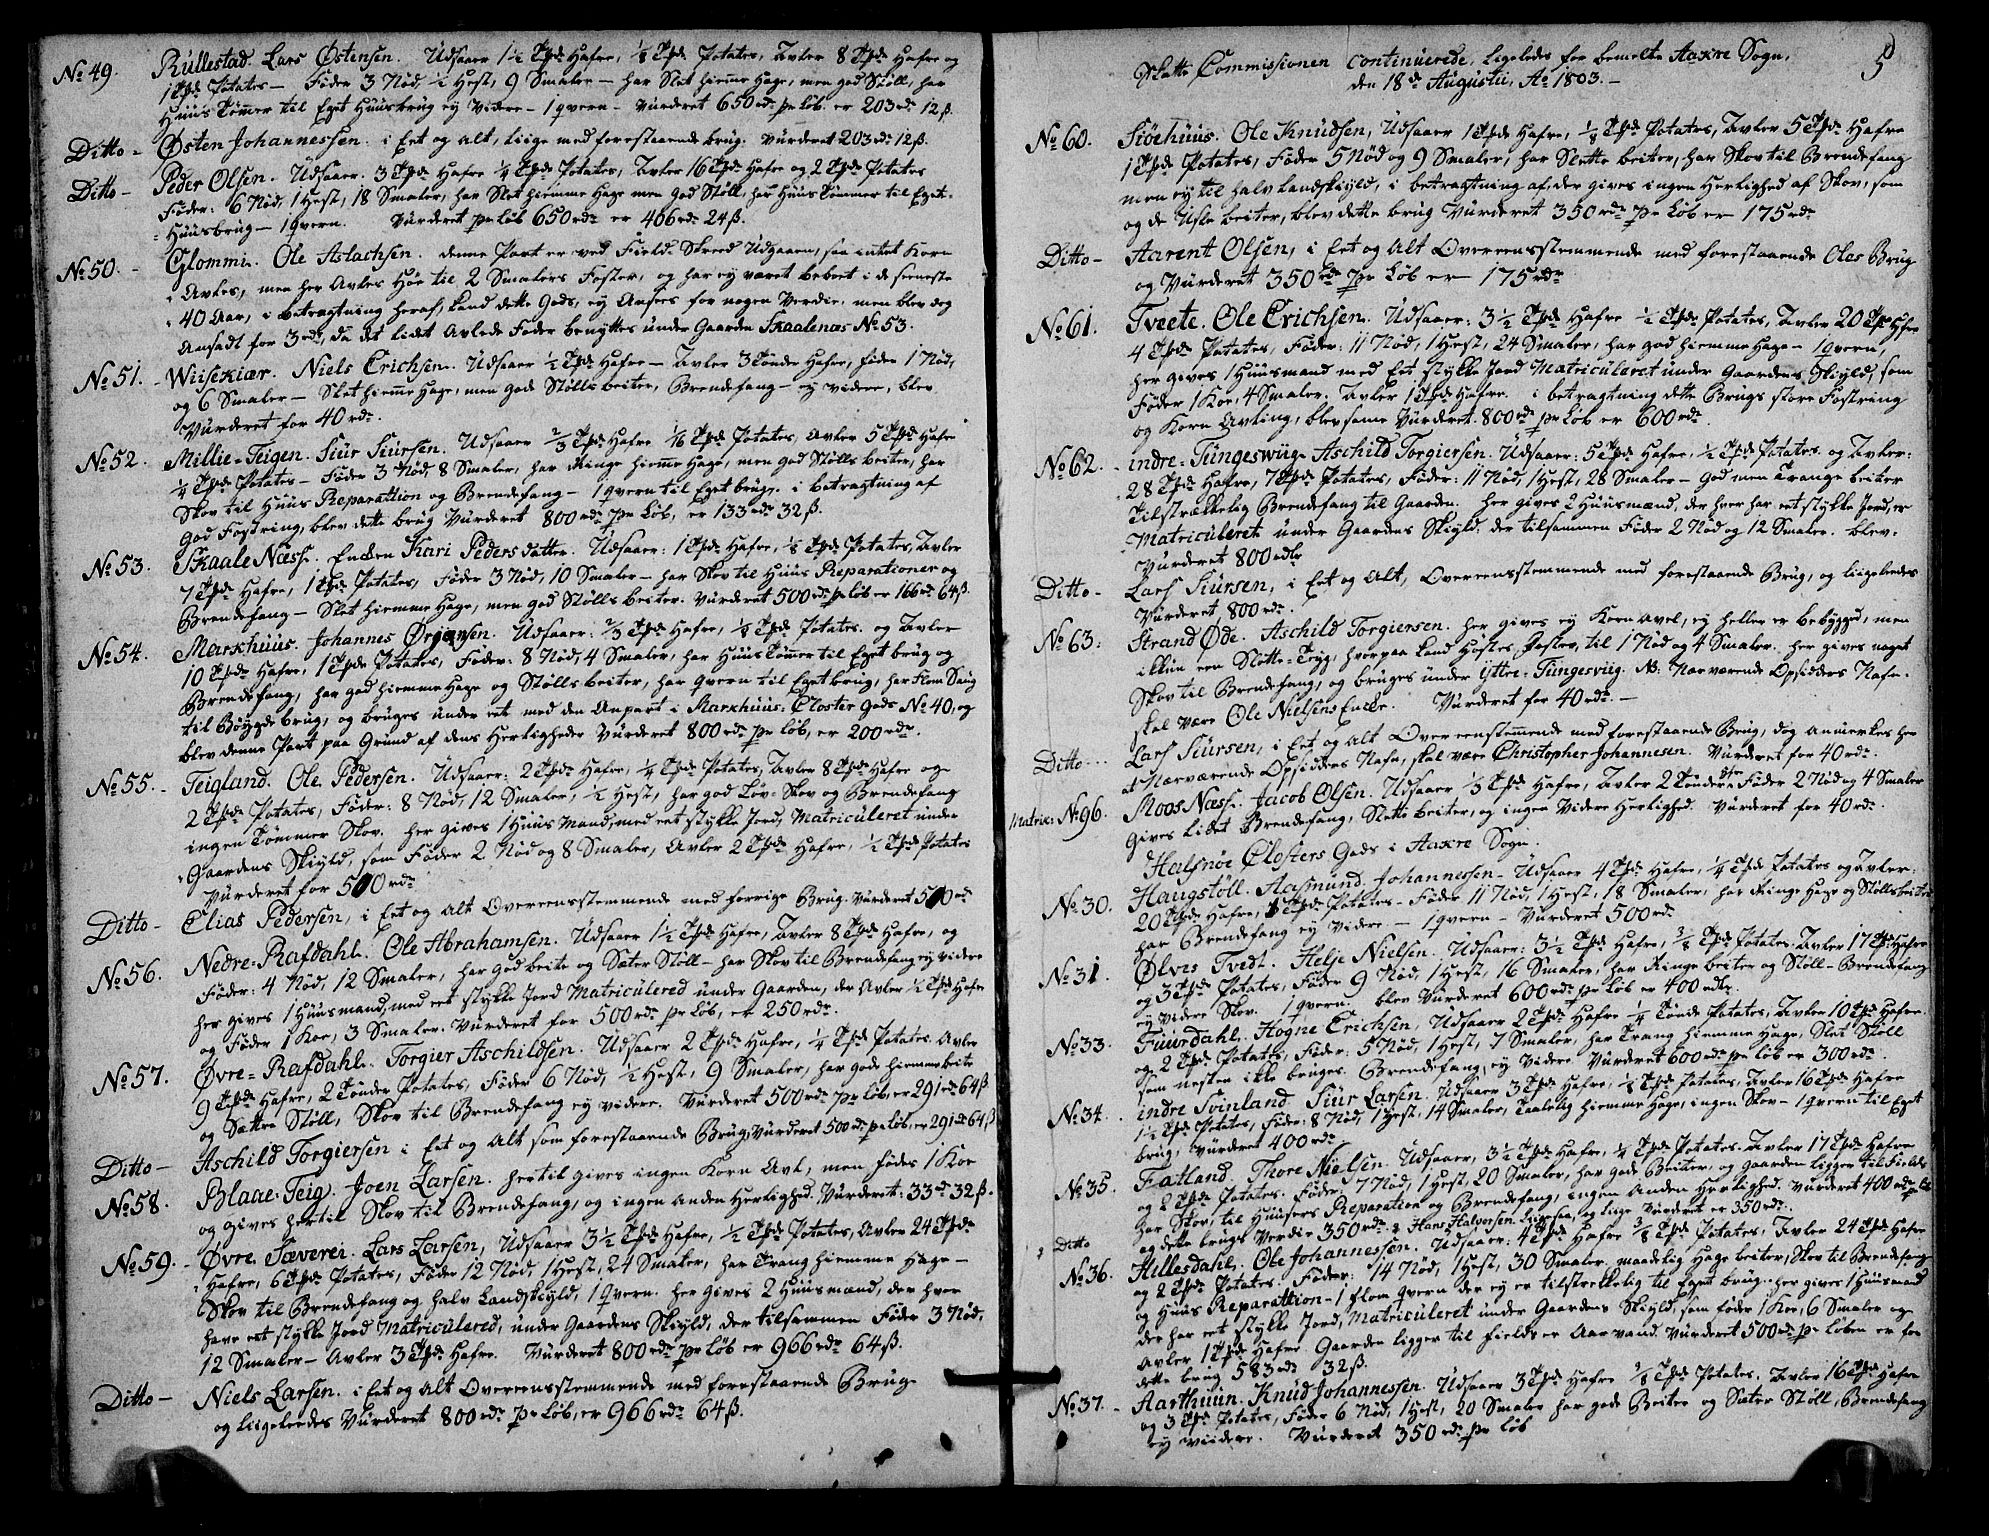 No 49. Rullestad. Lars Østensen. Udsaaer 1½ Tyde Hafre, ⅛ Tyde Potates, Avler 8 Tyde Hafre og
1 Tyde Potates – Føder 3 Nød, ½ Hest, 9 Smaler – har Slet hieme Hage, men god Støll, har
Huus Tømer til Eget Huusbrug ey Videre – 1 qvern – Vurderet 650 rdr pr Løb. er 203 rdr 12 ß.
Ditto – Østen Johannessen. i Eet og alt, liige med forestaaende brug. Vurderet 203 rdr 12 ß.
Ditto – Peder Olsen. Udsaaer. 3 Tyde Hafre ¼ Tyde Potates, Avler 16 Tyde Hafre og 2 Tyde Potates
Føder: 6 Nød, 1 Hest, 18 Smaler, har Slet hiemme Hage men God Støll, har Huus Tømmer til Eget
Huusbrug – 1 qvern. Vurderet pr Løb 650 rdr er 406 rdr 24 ß.
No 50. – Glommi. Ole Aslachsen. denne Part er ved Field Skreed Udgaaen, saa intet Korn
Avles, men her Avles Høe til 2 Smalers Foster, og har ey været beboet i de seeneste
40 Aar, i betragtning heraf, kand dette Gods, ey Ansees for nogen Verdie, men blev dog
Ansadt for 3 rdr, da det lidet Avlede Foder benyttes under Gaarden Skaalenæs No 53.
No 51. – Wiisekiær. Niels Erichsen. Udsaaer ½ Tyde Hafre – Avler 3 Tønder Hafre, føder 1 Nød,
og 6 Smaler – Slet hieme Hage, men gode Stølls beiter, Brendefang – ey videre, blev
Vurderet for 40 rdr.
No 52. Millie-Teigen. Siur Siursen. Udsaaer ⅔ Tyde Hafre 1/16 Tyde Potates, Avler 5 Tyde Hafre
¼ Tyde Potates – Føder 3 Nød, 8 Smaler, har Ringe hieme Hage, men god Stølls beiter, har
Skov til Huus Reparattion og Brendefang – 1 qvern til Eget brug. i betragtning af
god Fostring, blev dette brug Vurderet 800 rdr pr Løb, er 133 rdr 32 ß.
No 53. Skaale Næss. Encken Kari Peders datter. Udsaaer: 1 Tyde Hafre, ⅛ Tyde Potates, Avler
7 Tyde Hafre, 1 Tyde Potates, Føder 3 Nød, 10 Smaler – har Skov til Huus Reparationer og
Brendefang – Slet hiemme Hage, men god Stølls beiter. Vurderet 500 rdr pr Løb er 166 rdr 64 ß.
No 54. Markhuus. Johannes Ørjansen. Udsaaer: ⅔ Tyde Hafre, ⅛ Tyde Potates. og Avler
10 Tyde Hafre, 1 Tyde Potates, Føder: 8 Nød, 4 Smaler, har Huus Tømer til Eget brug og
Brendefang, har god hiemme Hage og Stølls beiter, har qvern til Eget brug, har Flom Saug
til Bøygde brug, og bruges under eet med den Anpart i Markhuus: Closter Gods No 40, og
blev denne Part paa Grund af dens Herligheder Vurderet 800 rdr pr Løb, er 200 rdr.
No 55. – Teigland. Ole Pedersen. Udsaaer: 2 Tyde Hafre, ¼ Tyde Potates, Avler 8 Tyde Hafre og
2 Tyde Potates, Føder: 8 Nød, 12 Smaler, ½ Hest, har god Løv-Skov og Brendefang
ingen Tømmer Skov. her gives 1 Huus Mand, med eet stykke Jord, Matriculeret under
Gaardens Skyld, som Føder 2 Nød og 8 Smaler, Avler 2 Tyde Hafre, ½ Tyde Potates
Vurderet for 500 rdr
Ditto – Elias Pedersen, i Eet og Alt Overeensstemmende med forrige Brug. Vurderet 500 rdr
No 56. Nedre-Rafdahl. Ole Abrahamsen. Udsaaer 1½ Tyde Hafre, Avler 8 Tyde Hafre, og
Føder: 4 Nød, 12 Smaler, har god beite og Sæter Støll – har Skov til Brendefang ey videre
her gives 1 Huusmand, med eet stykke Jord Matriculered under Gaarden, der Avler ½ Tyde Hafre
og Føder 1 Koe, 3 Smaler. Vurderet for 500 rdr pr Løb, er 250 rdr.
No 57. Øvre-Rafdahl. Torgier Aschildsen. Udsaaer 2 Tyde Hafre, ¼ Tyde Potates. Avler
9 Tyde Hafre, 2 Tønder Potates, Føder 6 Nød, ½ Hest, 9 Smaler, har gode hieme beite
og Sættre Støll, Skov til Brendefang ey videre. Vurderet 500 rdr pr Løb, er 291 rdr 64 ß
Ditto – Aschild Torgiersen i Eet og Alt som forestaaende Brug, Vurderet 500 rdr pr Løb, er 291 rdr 64 ß
No 58. Blaae-Teig. Joen Larsen. hertil gives ingen Korn Avl, men fødes 1 Koe
og gives hertil Skov til Brendefang, og ingen anden Herlighed. Vurderet: 33 rdr 32 ß.
No 59. – Øvre Tæverei. Lars Larsen, Udsaaer 3½ Tyde Hafre, ½ Tyde Potates, Avler 24 Tyde
Hafre, 6 Tyde Potates, Føder 12 Nød, 1 Hest, 24 Smaler, har Trang hiemme Hage –
Skov til Brendefang og halv Landskyld, 1 qvern. her gives 2 Huusmænd, der hver
have eet stykke Jord Matriculered, under Gaardens Skyld, der tilsammen Føder 3 Nød,
12 Smaler – Avler 3 Tyde Hafre. Vurderet 800 rdr pr Løb er 966 rdr 64 ß.
Ditto – Niels Larsen. i Eet og Alt Overeensstemmende med forestaaende Brug
og liigeleedes Vurderet 800 rdr pr Løb, er 966 rdr 64 ß.
5
Slatte Commissionen continuerede, ligeledes for bemelte Aakre Sogn,
den 18de Augustii, Ao 1803. –
No 60. Siøehuus. Ole Knudsen, Udsaaer 1 Tyde Hafre, ⅛ Tyde Potates, Avler 5 Tyde Hafre
1 Tyde Potates, Føder 5 Nød og 9 Smaler, har Slette beiter, har Skov til Brendefang
men ey til halv Landskyld, i betragtning af, der gives ingen Herlighed af Skov, som
og de Usle beiter, blev dette brug Vurderet 350 rdr pr Løb er – 175 rdr
Ditto – Aarent Olsen, i Eet og Alt Overeensstemmende med forestaaende Oles Brug
og Vurderet 350 rdr pr Løb er – 175 rdr
No 61. Tveete. Ole Erichsen. Udsaaer: 3½ Tyde Hafre ½ Tyde Potates, Avler 20 Tyde Hafre
4 Tyde Potates, Føder: 11 Nød, 1 Hest, 24 Smaler, har god hiemme Hage – 1 qvern,
her gives 1 Huusmand med Eet stykke Jord Matriculeret under Gaardens Skyld, som
Føder 1 Koe, 4 Smaler. Avler 1 Tyde Hafre. i betragtning dette Brugs store Fostring
og Korn Avling, blev same Vurderet 800 rdr pr Løb er 600 rdr.
No 62. – indre-Tungesviig. Aschild Torgiersen. Udsaaer: 5 Tyde Hafre, ½ Tyde Potates og Avler:
28 Tyde Hafre, 7 Tyde Potates, Føder: 11 Nød, 1 Hest, 28 Smaler – God men Trange beiter
Tilstrækkelig Brendefang til Gaarden. her gives 2 Huusmænd, der hver har eet stykke Jord, er
Matriculeret under Gaardens Skyld: der tilsammen Føder 2 Nød og 12 Smaler. blev.
Vurderet 800 rdlr
Ditto – Lars Siursen, i Eet og Alt, Overeensstemmende med forestaaende Brug, og liigeleedes
Vurderet 800 rdr.
No 63: Strand Øde. Aschild Torgiersen. her gives ey Korn Avel, ey heller er bebygged, men
ikkun een Slotte-Teyg, hvorpaa kand Høstes Foster til 1 Nød og 4 Smaler. her gives noget
Skov til Brendefang, og bruges under yttre-Tungesviig. NB: Nærværende Opsidders Nafn.
skal være Ole Nielsens Encke. Vurderet for 40 rdr. –
Ditto... Lars Siursen, i Eet og Alt Overeenstemende med forestaaende Brug, dog anmerkes her
at Nærværende Opsidders Nafn, skal være Christopher Johannesen. Vurderet for 40 rdr.
Matric: No 96. Moos Næss. Jacob Olsen. Udsaaer ⅓ Tyde Hafre, Avler 2 Tønder Hfre Føder 2 Nød og 4 Smaler
gives lidet Brendefang, Slette beiter, og ingen Videre Herlighed. Vurderet for 40 rdr.
Halsnøe Closters Gods i Aakre Sogn.
No 30. Haugstøll. Aasmund Johannessen – Udsaaer 4 Tyde Hafre, ¼ Tyde Potates og Avler:
20 Tyde Hafre, Tyde Potates – Føder 11 Nød, 1 Hest, 18 Smaler, har Ringe Hage og Støllsbeiter
har Brendefang ey Videre – 1 qvern – Vurderet 500 rdr
No 31 Ølvis Tvedt. Helje Nielsen. Udsaaer: 3½ Tyde Hafre, ⅜ Tyde Potates. Avler 17 Tyde Hafre
og 3 Tyde Potates, Føder 9 Nød, 1 Hest, 16 Smaler, har Ringe beiter og Støll – Brendefang
ey videre Skov. 1 qvern. blev Vurderet 600 rdr pr Løb er 400 rdlr.
No 33. Fuurdahl. Hogne Erichsen, Udsaaer 2 Tyde Hafre ¼ Tønde Potates, Avler 10 Tyde Hafre
og 2 Tyde Potates, Føder: 5 Nød, 1 Hest, 7 Smaler, har Trang hiemme Hage, Slet Støll
som nesten ikke bruges. Brendefang, ey videre Vurderet 600 rdr pr Løb er 300 rdr.
No 34. indre Svinland. Siur Larsen. Udsaaer 3 Tyde Hafre, ⅛ Tyde Potates, Avler 16 Tyde Hafre
1½ Tyde Potates, Føder: 8 Nød, 1 Hest, 14 Smaler, Taalelig hiemme Hage, ingen Skov – 1 qvern til Eget
brug, Vurderet 400 rdr.
No 35. Fatland. Thore Nielsen. Udsaaer, 3½ Tyde Hafre, ¼ Tyde Potates. Avler 17 Tyde Hafre
og 2 Tyde Potates. Føder: 7 Nød, 1 Hest, 20 Smaler, har gode Beiter, og Gaarden ligger til Fields
har Skov, til Huusers Reparation og Brendefang, ingen Anden Herlighed. Vurderet 400 rdr pr Lb
og dette brugs Verdie 350 rdr
Ditto Hans Halvorsen Ligesaa, og liige Vurderet er 350 rdr.
No 36. Hillesdahl. Ole Johannessen. Udsaaer: 4 Tyde Hafre ⅜ Tyde Potates, Avler 24 Tyde Hafre
og 2 Tyde Potates. Føder: 14 Nød, 1 Hest, 30 Smaler. maadelig Hage beiter, Skov til Brendefang
og Huus Reparattion – 1 flom qvern der ey er tilstreckelig til Eget brug. her gives 1 Huusmand
der har eet stykke Jord, Matriculeret under Gaardens Skyld, som føder 1 Koe, 6 Smaler og
Avler 1 Tyde Hafre. Gaarden ligger til Fields er Aarvand. Vurderet 500 rdr pr Løben er for
dette brug 583 rdr 32 ß.
No 37. – Aarthuun. Knud Johannessen. Udsaaer 3 Tyde Hafre ⅛ Tyde Potates. Avler 16 Tyde Hafre
og 3 Tyde Potates, Føder 6 Nød, 1 Hest, 20 Smaler har gode Beiter og Sæter Støll, Brendefang
ey viidere. Vurderet 350 rdr pr Løb